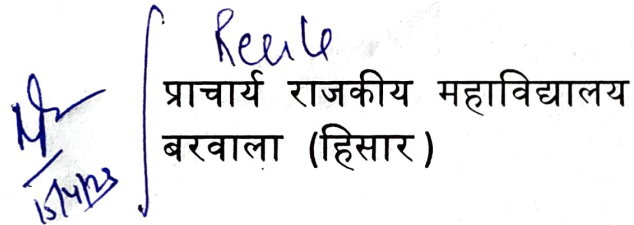 प्राचार्य राजकीय महाविद्यालय
बरवाला (हिसार)
15/4/23